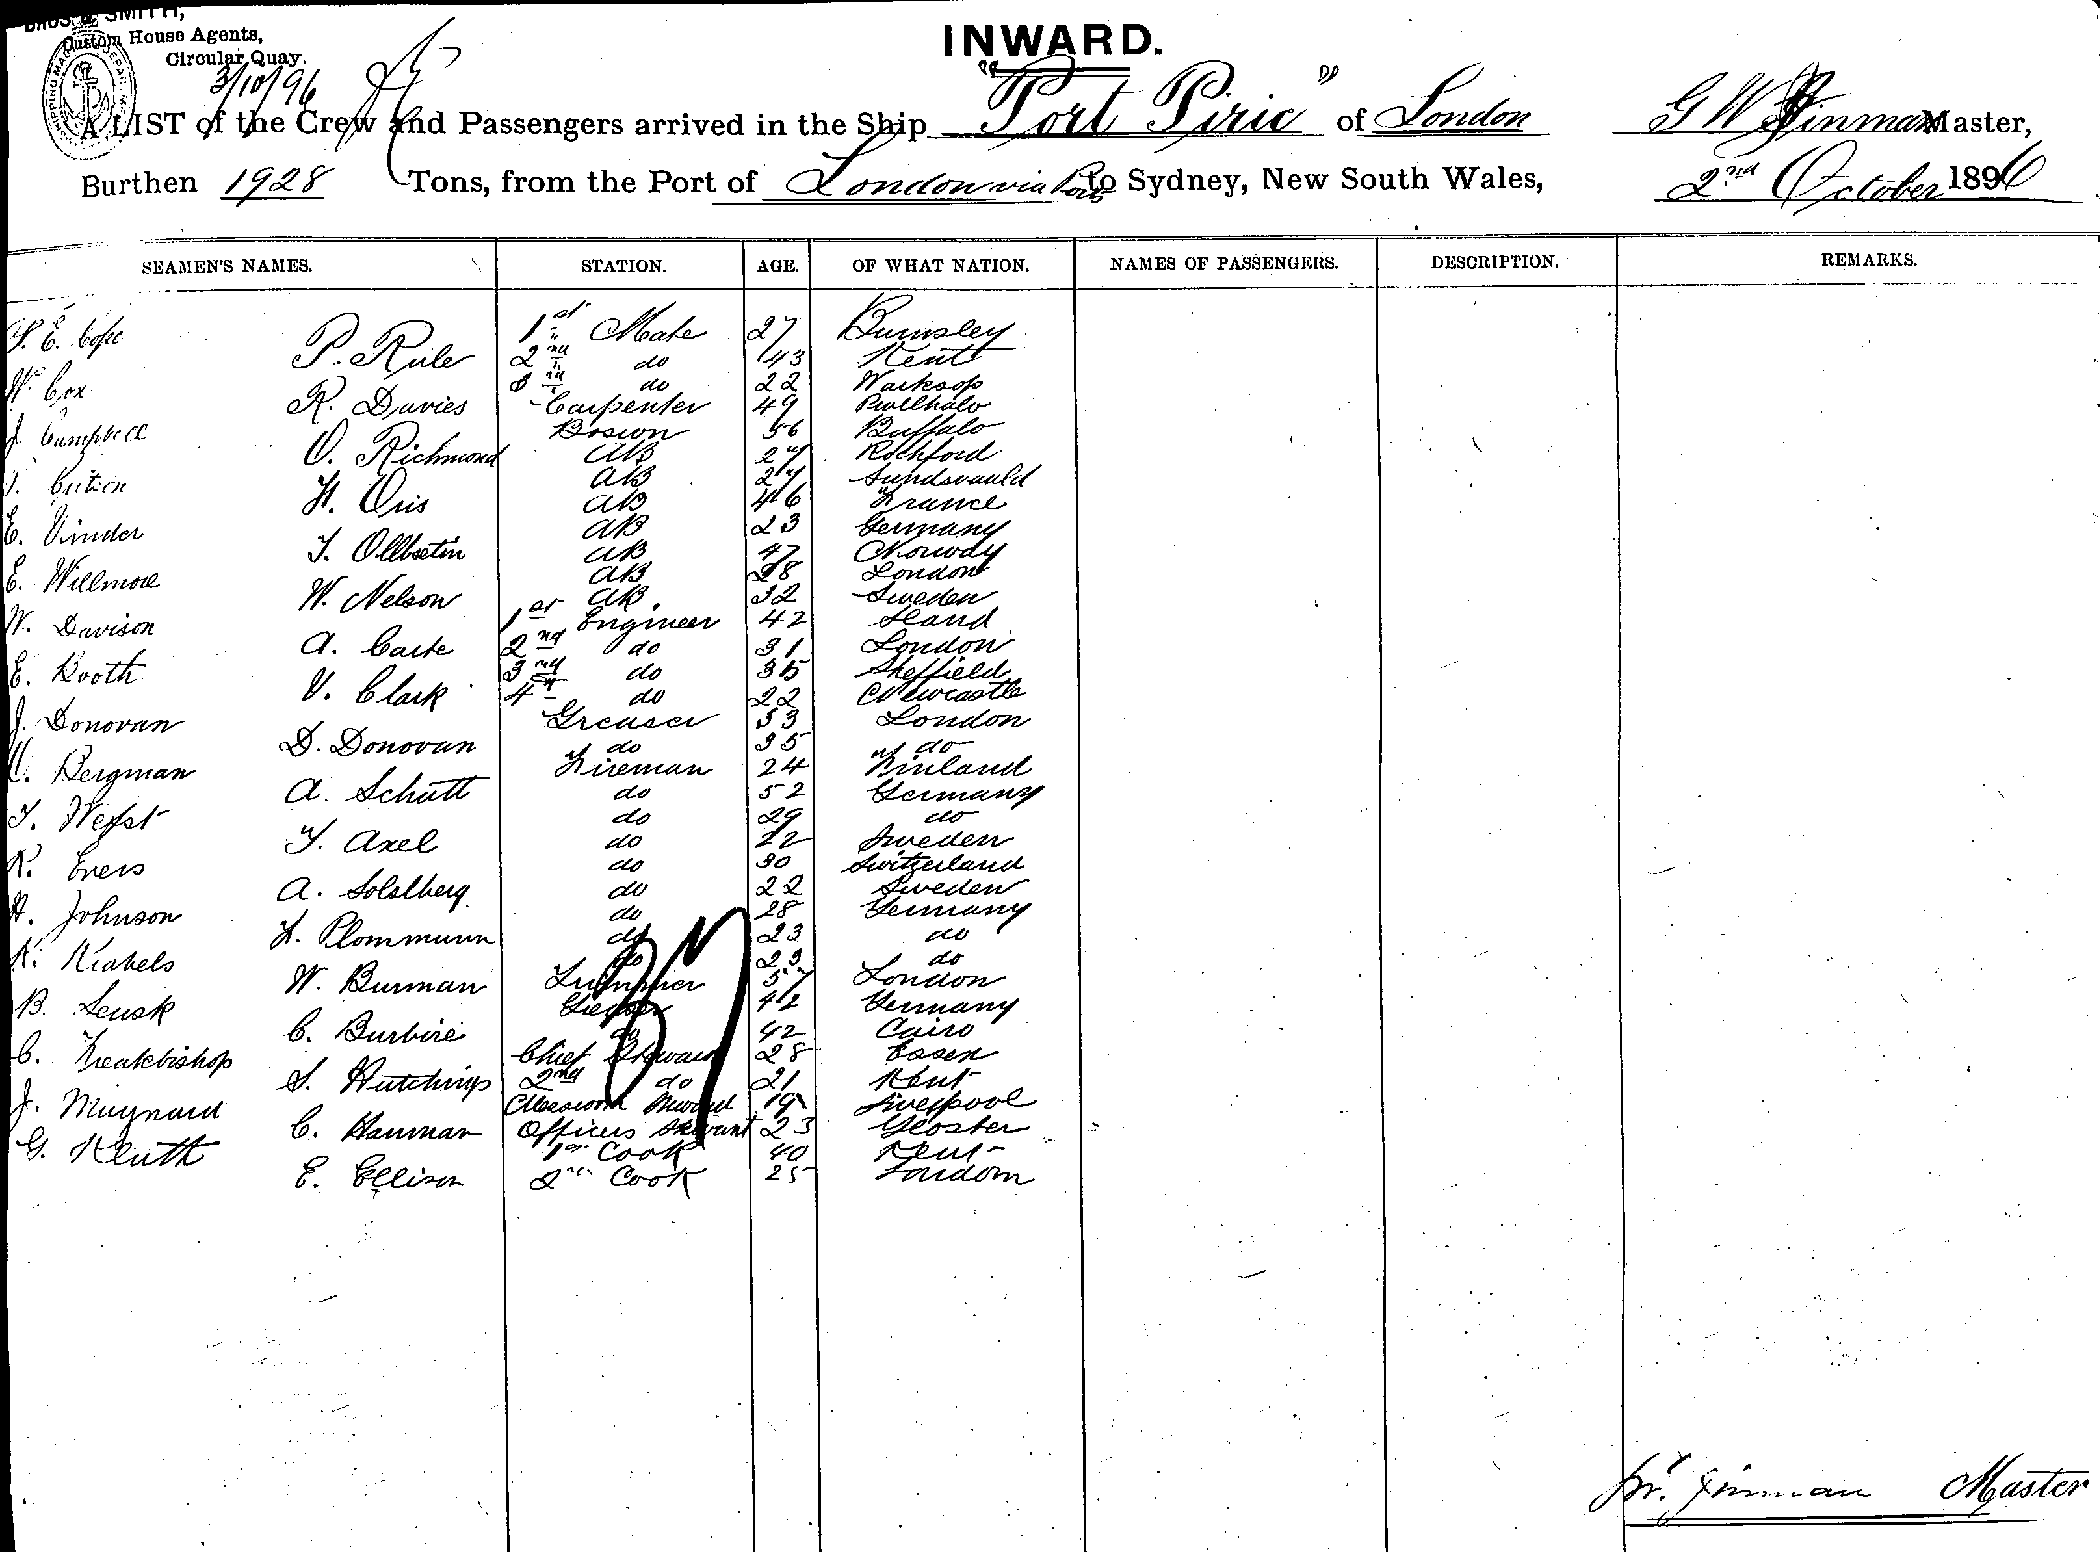 SMITH,
Custom House Agents,
Circular Quay.
3/10/96
INWARD.
A LIST of the Crew and Passengers arrived in the Ship "Port Pirie" of London G W Hinman Master,
Burthen 1928 Tons, from the Port of London via Ports to Sydney, New South Wales, 2nd October 1896
SEAMEN'S NAMES. STATION. AGE. OF WHAT NATION. NAMES OF PASSENGERS. DESCRIPTION. REMARKS.
E. Cope 1st Mate 27 Burnsley
P. Rule 2nd do 43 Kent
W. Cox 3rd do 22 Worksop
R. Davies Carpenter 49
J. Campbell Boswn 56 Buffalo
O. Richmond AB 27 Rochford
AB 24 Sundsvauld
H. Oris AB 46 France
E. Vinder AB 23 Germany
T. AB 47 Norway
E. Willmore AB 28 London
W. Nelson AB. 32 Sweden
W. Davison 1st Engineer 42
A. Carte 2nd do 31 London
E. Booth 3rd do 35 Sheffield
V. Clark 4th do 22 Newcastle
J. Donovan Greaser 53 London
D. Donovan do 35 do
Bergman Fireman 24 Finland
A. Schutt do 52 Germany
do 29 do
T. Axel do 22 Sweden
R. Evers do 30 Switzerland
A. Solslberg do 22 Sweden
H. Johnson do 28 Germany
Plommunn do 23 do
K. do 23 do
W. Burman Trimmer 57 London
B. Sensk 42 Germany
C. Burbire do 42 Cairo
C. Freakbishop Chief Steward 28 Essex
S. Hutchings 2nd do 21 Kent
J. Maynard Messroom Steward 19 Liverpool
C. Hanman Officers Servant 23 Gloster
G. Kluth 1st Cook 40 Kent
E. Ellison 2nd Cook 25 London
37
Hinman Master